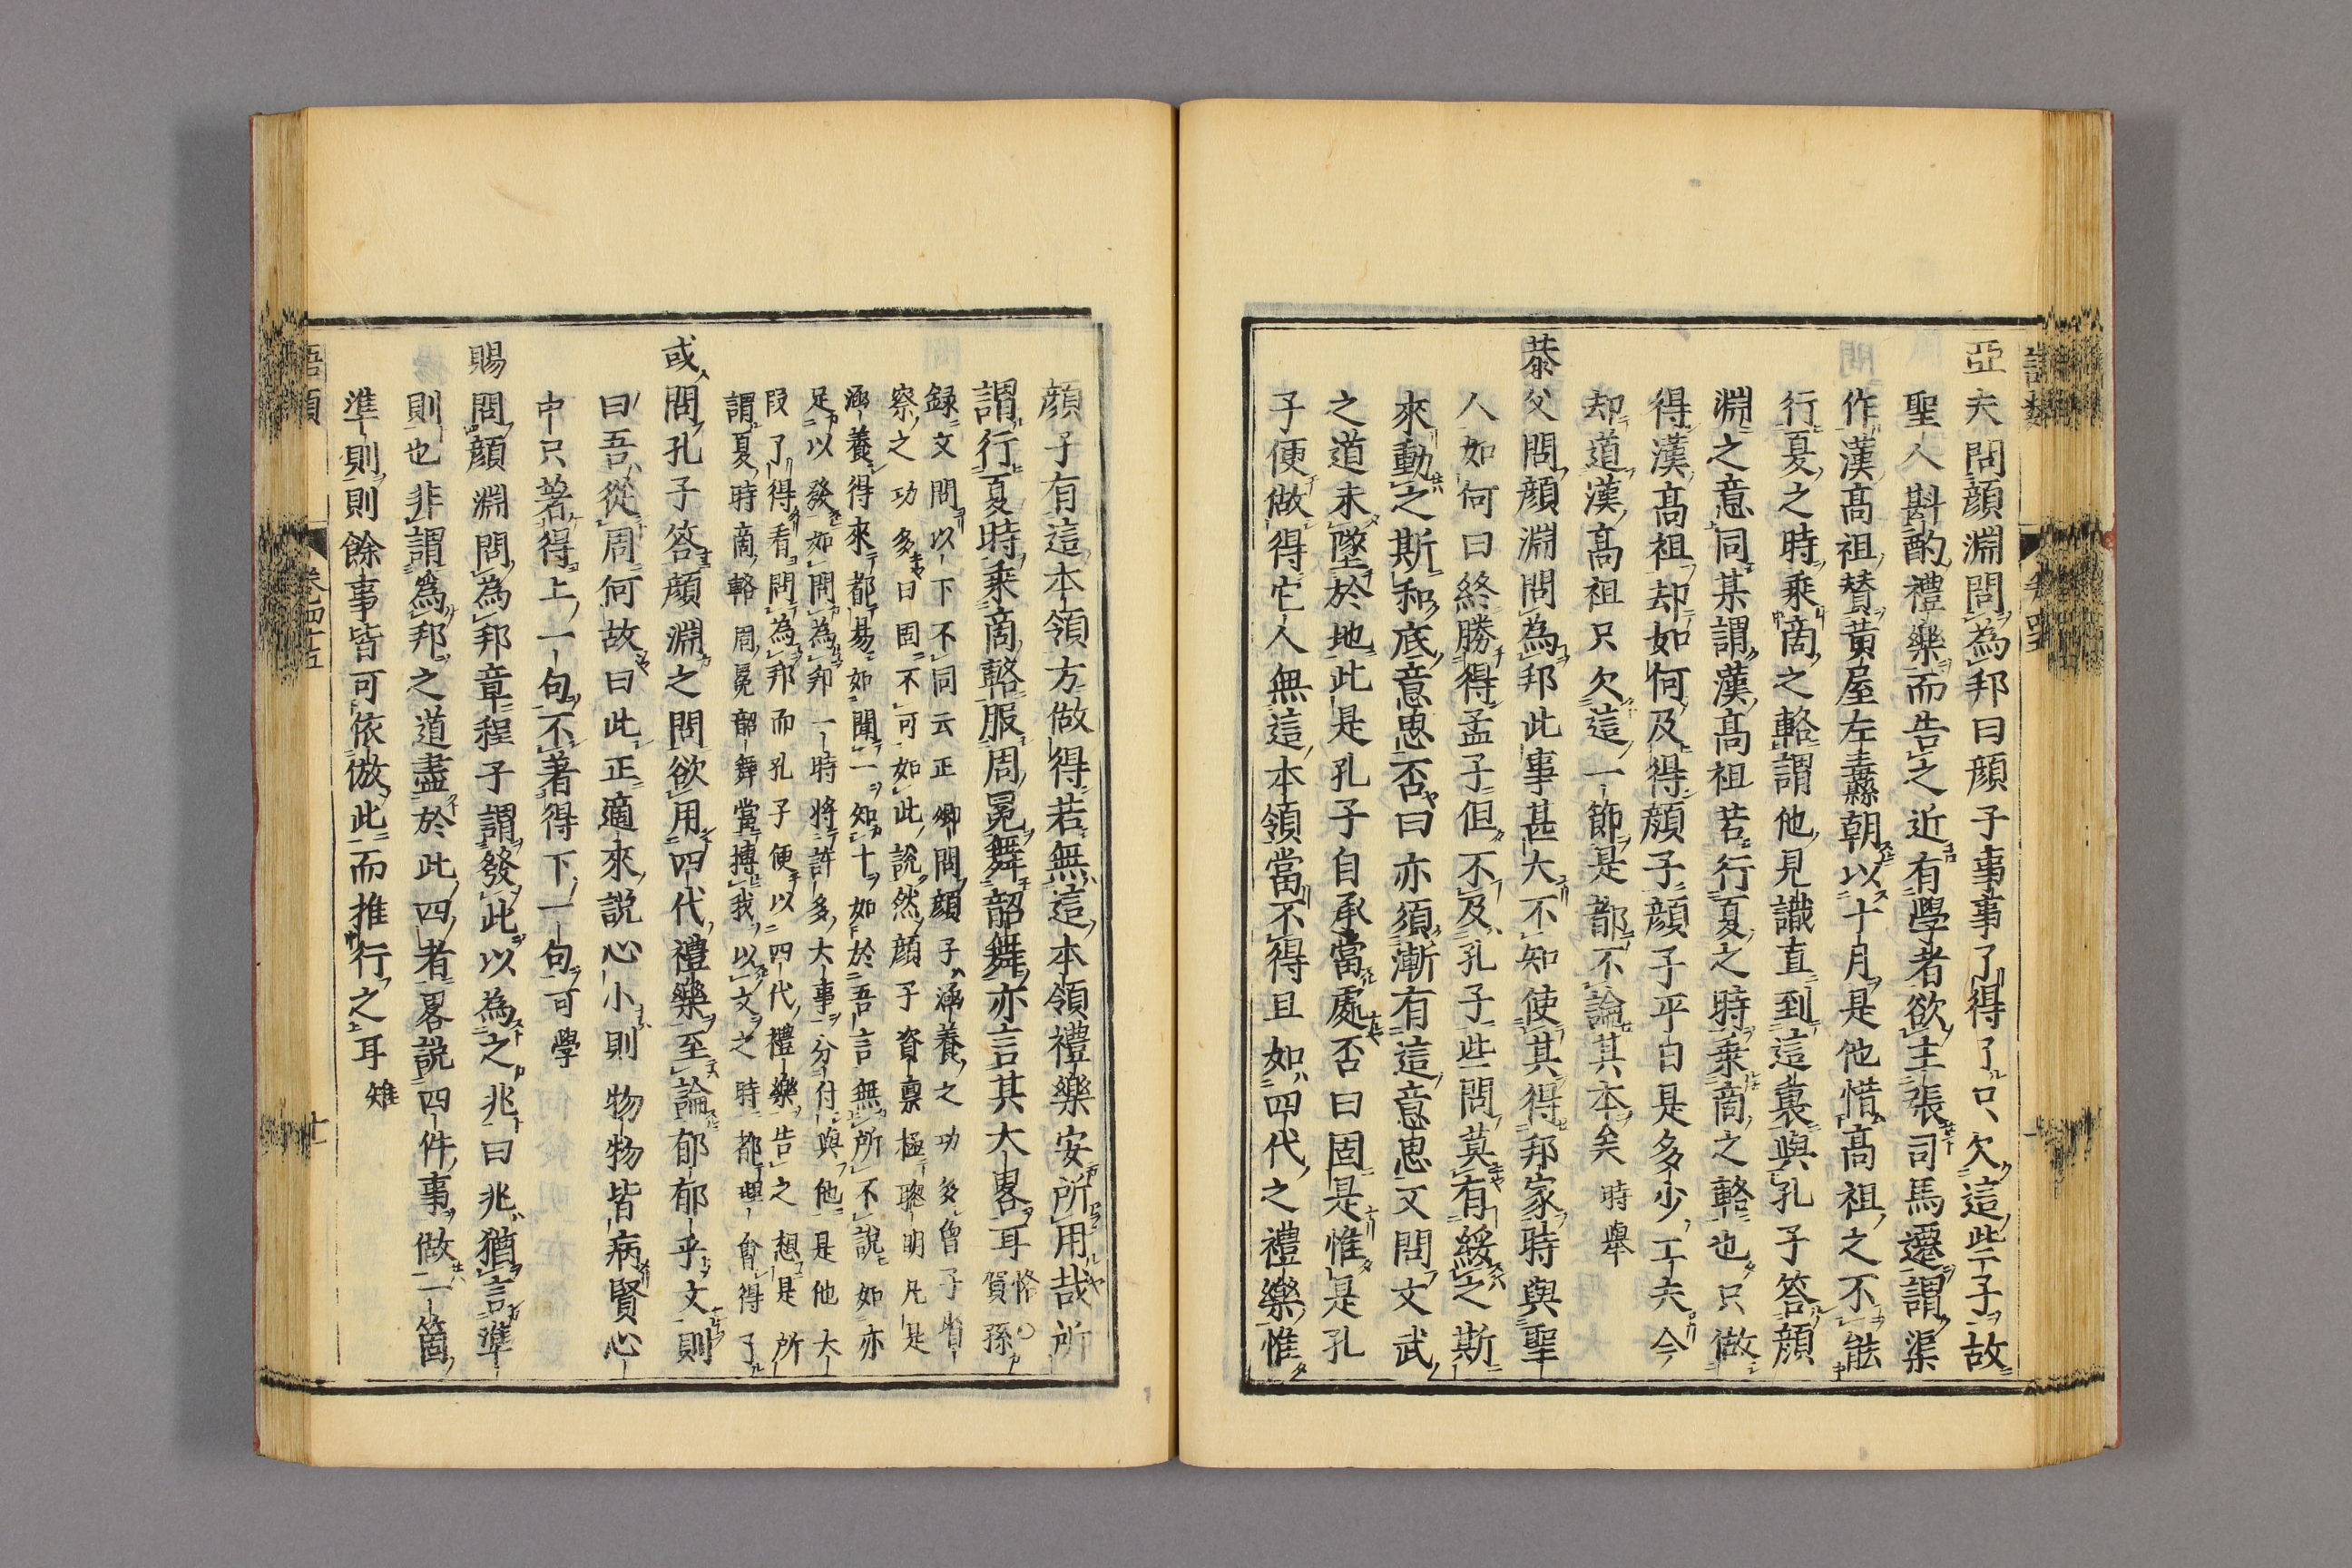 亞夫問顔淵問為邦曰顔子事事了得了只欠這些子故
聖人斟酌禮樂而告之近有學者欲主張司馬遷謂渠
作漢髙祖賛黄屋左纛朝以十月是他惜髙祖之不能
行夏之時乘啇之輅謂他見識直到這裏與孔子答顔
淵之意同某謂漢髙祖若行夏之時乘啇之輅也只做
得漢髙祖却如何及得顔子顔子平日是多少工夫今
却道漢髙祖只欠這一節是都不論其本矣 時舉
恭父問顔淵問為邦此事甚大不知使其得邦家時與聖
人如何曰終勝得孟子但不及孔子些問莫有綏之斯
來動之斯和底意思否曰亦須漸有這意思又問文武
之道未墜於地此是孔子自承當處否曰固是惟是孔
子便做得它人無這本領當不得且如四代之禮樂惟
顔子有這本領方做得若無這本領禮樂安所用哉所
謂行夏時乘啇輅服周冕舞韶舞亦言其大畧耳 恪○賀孫
録文問以下不同云正卿問顔子涵養之功多曾子省
察之功多曰固不可如此說然顔子資禀極聰明凡是
涵養得來都易如聞一知十如於吾言無所不說如亦
足以發如問為邦一時將許多大事分付與他是他大
段了得看問為邦而孔子便以四代禮樂告之想是所
謂夏時啇輅周冕韶舞當博我以文之時都理會得了
或問孔子答顔淵之問欲用四代禮樂至論郁郁乎文則
曰吾從周何故曰此正適來說心小則物物皆病賢心
中只著得上一句不著得下一句 可學
賜問顔淵問為邦章程子謂發此以為之兆曰兆猶言準
則也非謂為邦之道盡於此四者畧說四件事做一箇
準則則餘事皆可依倣此而推行之耳 雉
語類
卷四十五